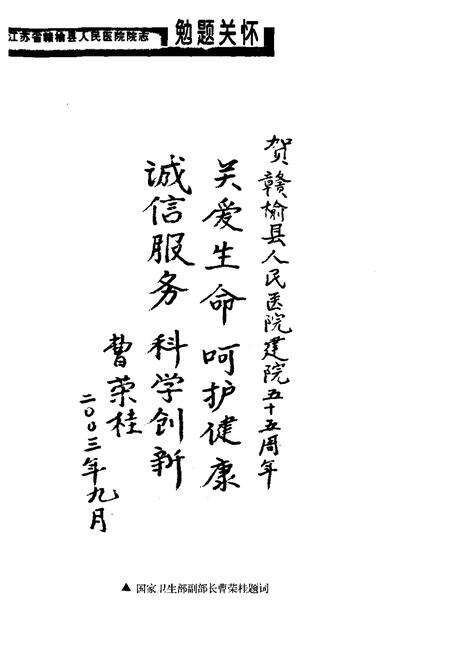 江苏省赣榆县人民医院院志
勉题关怀
贺赣榆县人民医院建院五十五周年
关爱生命 呵护健康
诚信服务 科学创新
曹荣桂
二00三年九月
▲ 国家卫生部副部长曹荣桂题词